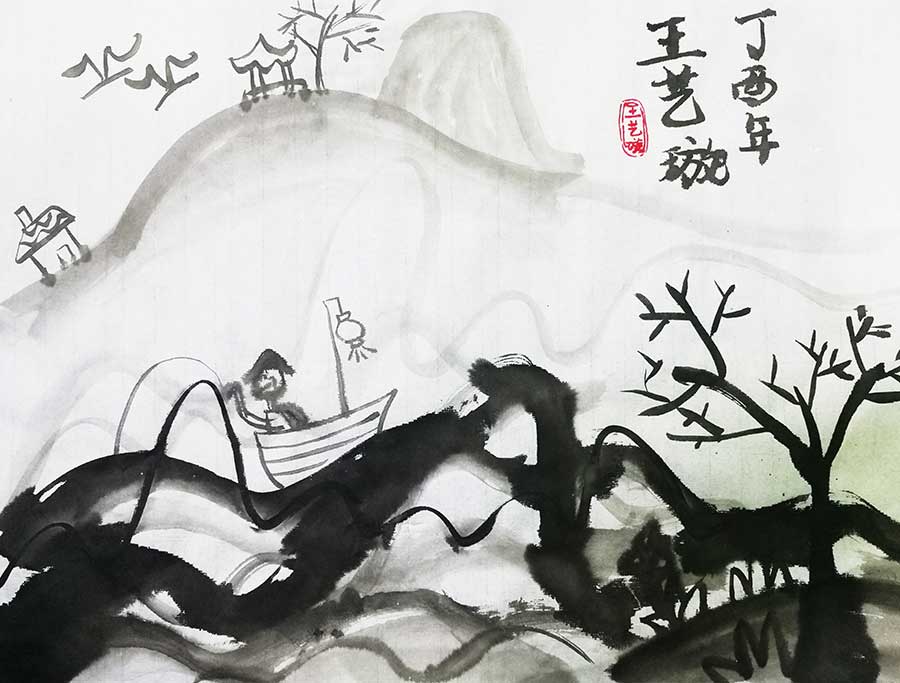 丁酉年
王艺璇
王艺璇